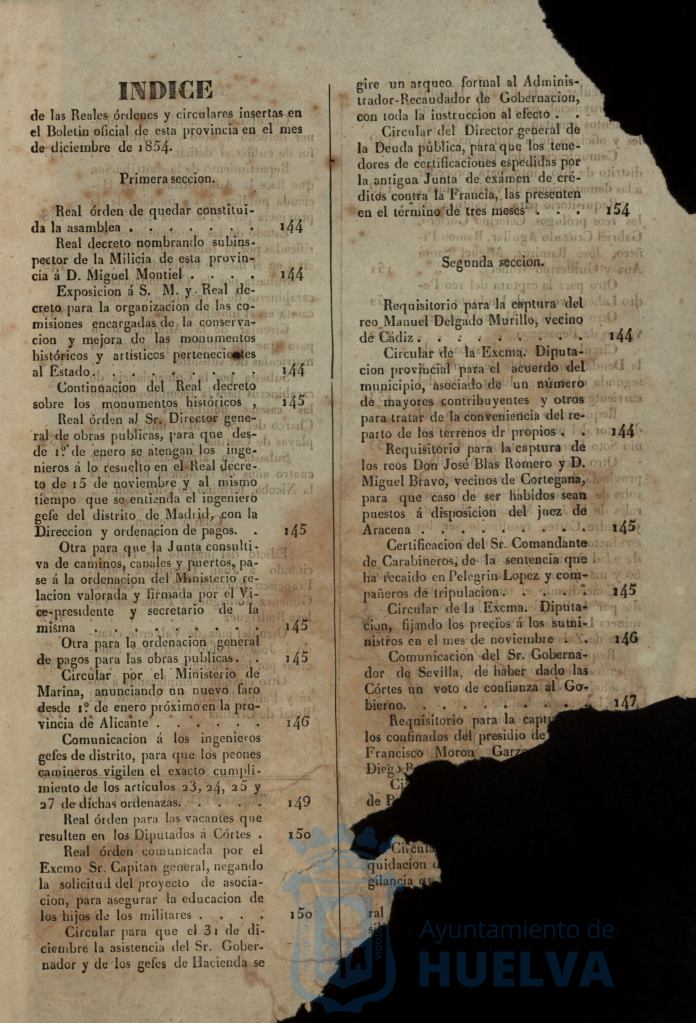 INDICE
de las Reales órdenes y circulares insertas en
el Boletin oficial de esta provincia en el mes
de diciembre de 1854.
Primera seccion.
Real órden de quedar constitui-
da la asamblea . . . . . . . 144
Real decreto nombrando subins-
pector de la Milicia de esta provin-
cia á D. Miguel Montiel . . . . 144
Exposicion á S. M. y Real de-
creto para la organizacion de las co-
misiones encargadas de la conserva-
cion y mejora de las monumentos
históricos y artísticos pertenecientes
al Estado. . . . . . . . . 144
Continuacion del Real decreto
sobre los monumentos históricos , 145
Real órden al Sr. Director gene-
ral de obras publicas, para que des-
de 1º de enero se atengan los inge-
nieros á lo resuelto en el Real decre-
to de 15 de noviembre y al mismo
tiempo que se entienda el ingeniero
gefe del distrito de Madrid, con la
Direccion y ordenacion de pagos. . 145
Otra para que la Junta consulti-
va de caminos, canales y puertos, pa-
se á la ordenacion del Ministerio re-
lacion valorada y firmada por el Vi-
ce-presidente y secretario de la
misma . . . . . . . . 145
Otra para la ordenacion general
de pagos para las obras publicas. . 145
Circular por el Ministerio de
Marina, anunciando un nuevo faro
desde 1º de enero próximo en la pro-
vincia de Alicante . . . . . . 146
Comunicacion á los ingenieros
gefes de distrito, para que los peones
camineros vigilen el exacto cumpli-
miento de los artículos 23, 24, 25 y
27 de dichas ordenazas. . . . . 149
Real órden para las vacantes que
resulten en los Diputados á Córtes . 150
Real órden comunicada por el
Excmo Sr. Capitan general, negando
la solicitud del proyecto de asocia-
cion, para asegurar la educacion de
los hijos de los militares . . . . 150
Circular para que el 31 de di-
ciembre la asistencia del Sr. Gober-
nador y de los gefes de Hacienda se
gire un arqueo formal al Adminis-
trador-Recaudador de Gobernacion,
con toda la instruccion al efecto . .
Circular del Director general de
la Deuda pública, para que los tene-
dores de certificaciones espedidas por
la antigua Junta de exámen de cré-
ditos contra la Francia, las presenten
en el término de tres meses . . . 154
Segunda seccion.
Requisitorio para la captura del
reo Manuel Delgado Murillo, vecino
de Cádiz . . . . . . . . . 144
Circular de la Excma. Diputa-
cion provincial para el acuerdo del
municipio, asociado de un número
de mayores contribuyentes y otros
para tratar de la conveniencia del re-
parto de los terrenos dr propios . . 144
Requisitorio para la captura de
los reos Don José Blas Romero y D.
Miguel Bravo, vecinos de Cortegana,
para que caso de ser habidos sean
puestos á disposicion del juez de
Aracena . . . . . . . . . 145
Certificacion del Sr. Comandante
de Carabineros, de la sentencia que
ha recaido en Pelegrin Lopez y com-
pañeros de tripulacion. . . . . 145
Circular de la Excma. Diputa-
cion, fijando los precios á los sumi-
nistros en el mes de noviembre . . 146
Comunicacion del Sr. Goberna-
dor de Sevilla, de haber dado las
Córtes un voto de confianza al Go-
bierno. . . . . . . . . . 147
Requisitorio para la captu
los confinados del presidio de
Francisco Moron Garz
Diego
Ci
de
Circula
quidacion
gilancia
ral
Ayuntamiento de
HUELVA